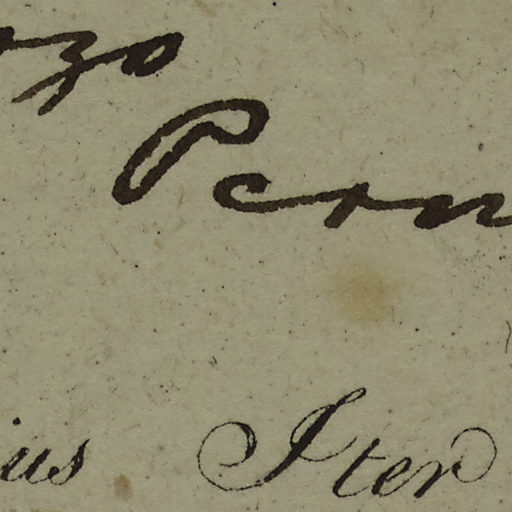 ozo
Pern
ius Iter